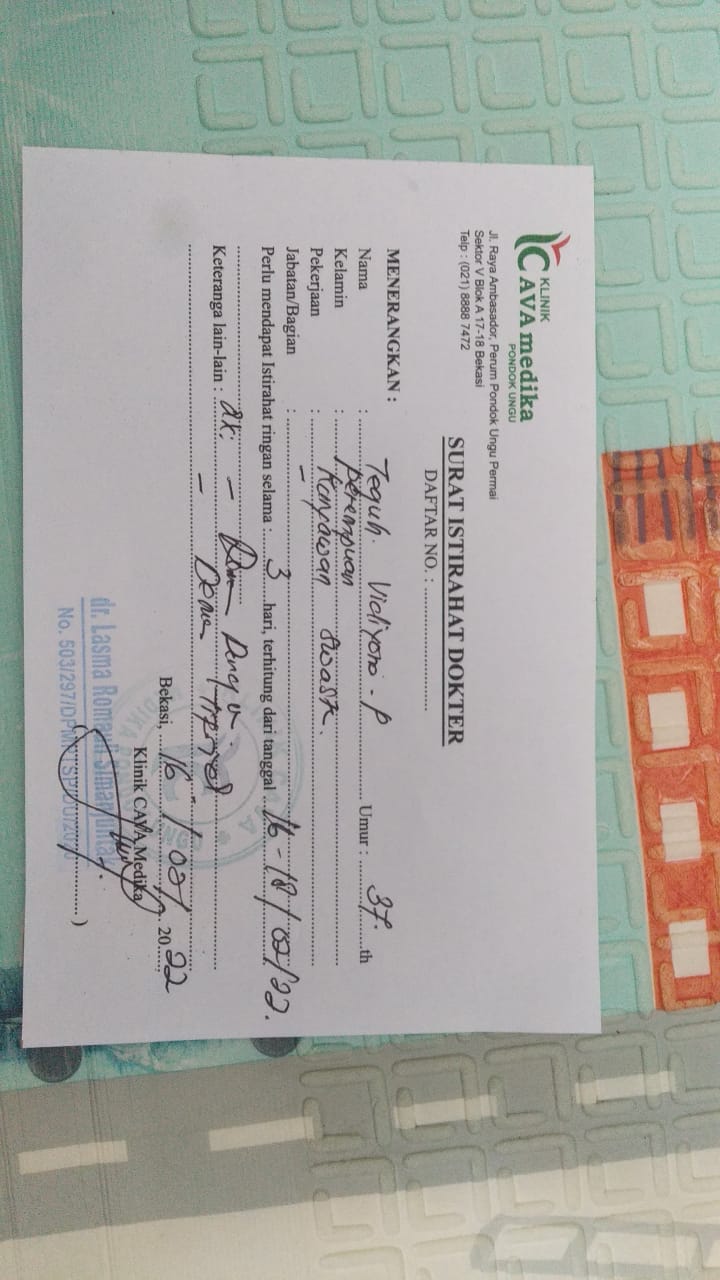 KLINIK
CAVA medika
PONDOK UNGU
Jl. Raya Ambasador, Perum Pondok Ungu Permai
Sektor V Blok A 17-18 Bekasi
Telp : (021) 8888 7472
SURAT ISTIRAHAT DOKTER
DAFTAR NO. : ....................
MENERANGKAN :
Nama : Teguh. Vidiyono - P Umur : 37 th
Kelamin : perempuan
Pekerjaan : Karyawan swasta.
Jabatan/Bagian : –
Perlu mendapat Istirahat ringan selama : 3 hari, terhitung dari tanggal 16 - 18 / 02 / 22.
Keteranga lain-lain :
Bekasi, 16 / 02 / 2022
Klinik CAVA Medika
dr. Lasma Roma
No. 503/297/DPM